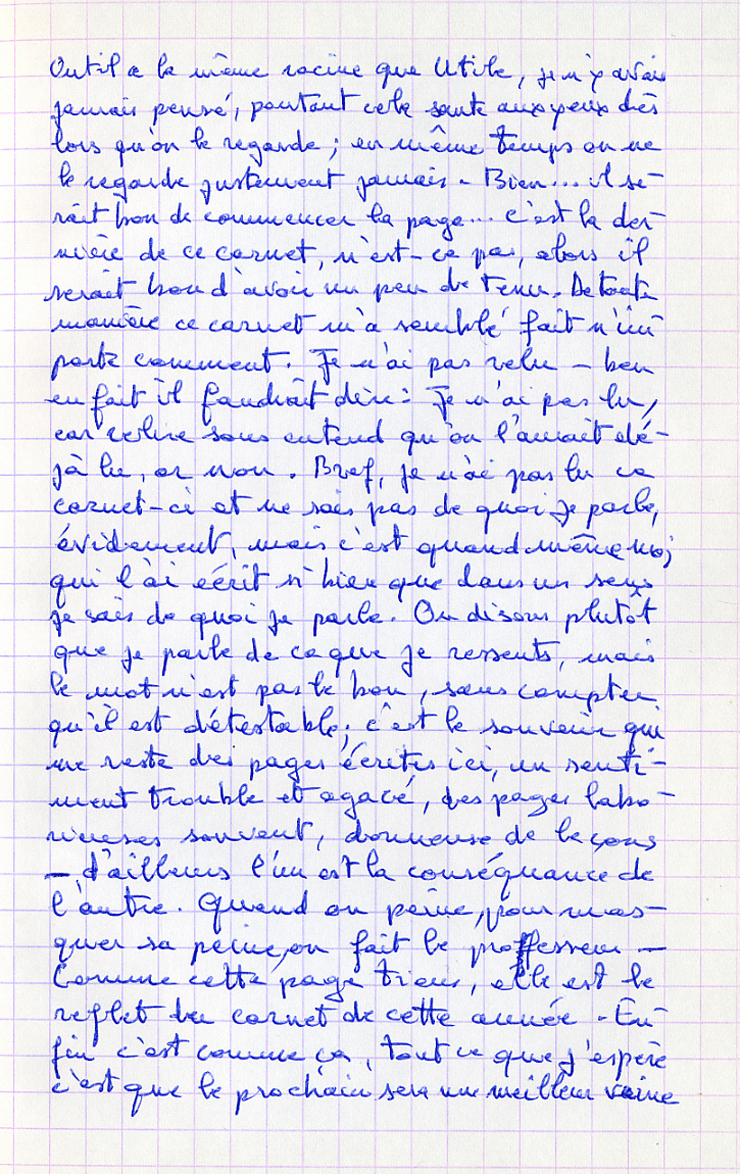 Outil a la même racine que Utile, je n'y avais
jamais pensé, pourtant cela saute aux yeux dès
lors qu'on le regarde ; en même temps on ne
le regarde justement jamais - Bien... il se-
rait bon de commencer la page... c'est la der-
nière de ce carnet, n'est-ce pas, alors il
serait bon d'avoir un peu de tenue. De toute
manière ce carnet m'a semblé fait n'im
porte comment. Je n'ai pas relu - ben
en fait il faudrait dire : Je n'ai pas lu,
car relire sous entend qu'on l'aurait dé-
jà lu, or non. Bref, je n'ai pas lu ce
carnet-ci et ne sais pas de quoi je parle,
évidement, mais c'est quand même moi
qui l'ai écrit si bien que dans un sens
je sais de quoi je parle. Ou disons plutôt
que je parle de ce que je ressents, mais
le mot n'est pas le bon, sans compter
qu'il est détestable ; c'est le souvenir qui
me reste des pages écrites ici, un senti-
ment trouble et agacé, des pages labo-
rieuses souvent, donneuse de leçons
- d'ailleurs l'un est la conséquance de
l'autre. Quand on peine, pour mas-
quer sa peine, on fait le professeur -
Comme cette page tiens, elle est le
reflet du carnet de cette année - En-
fin c'est comme ça, tout ce que j'espère
c'est que le prochain sera une meilleur veine